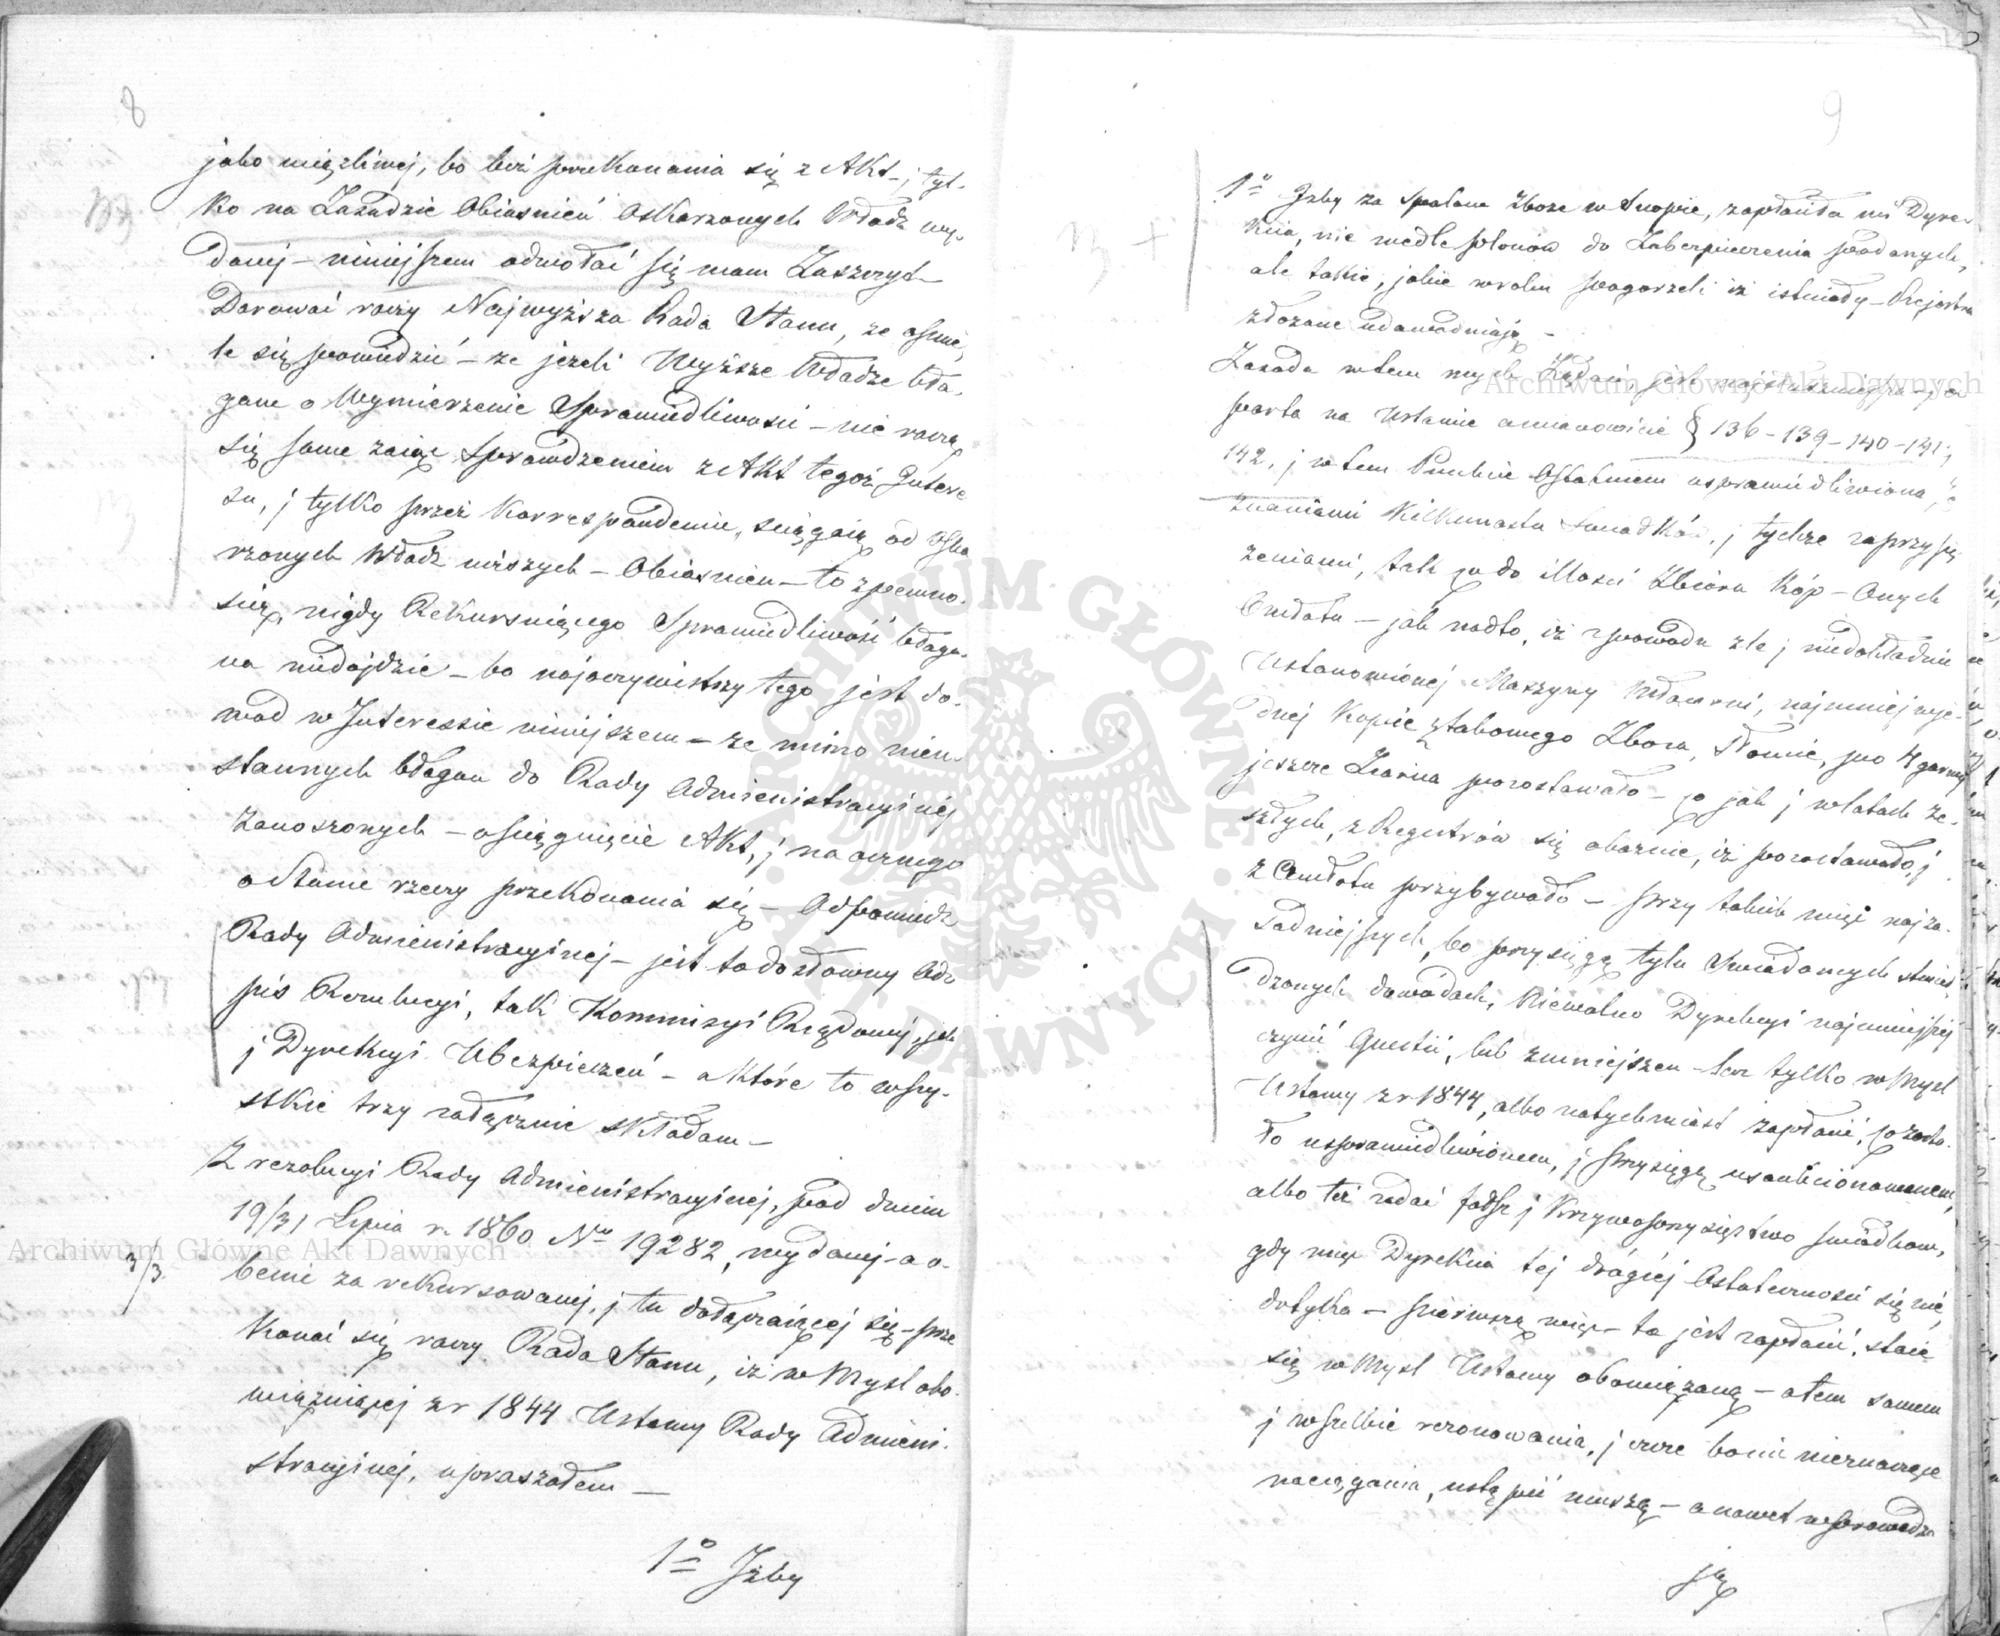 8
jako wiążliwej, bo bez przekonania się z Akt, j tyl-
ko na Zasadzie Obiasnień Oskarzonych Władz wy-
daney – niniejszem odwołać się mam Zaszczyt
Darować raczy Najwyższa Rada Stanu, ze osmie,
le się powiedzić – ze jezeli Wyższe Władze bła-
gane o Wymierzenie Sprawiedliwosci – nie raczą
się same zaiąć Sprawdzeniem z Akt tegoż Intere
su, j tylko przez Korrespondencie, sciągaią od Oska
rzonych Władz niższych – Obiasnień – to z pewno-
scią, nigdy Rekursuiącego Sprawiedliwość błaga-
na niedojdzie – bo najoczywistszy tego jest do-
wod w Interessie niniejszem – ze mimo nieu-
stannych błagań do Rady Administracyjnej
Zanoszonych – osciągnięcie Akt, j naocznego
o Stanie rzeczy przekonania się – Odpowiedz
Rady Administracyjnej – jest to dosłowny Od-
pis Rezolucyi, tak Kommissyi Rządowej, jak
j Dyrekcyi Ubezpieczeń – a które to wszy-
stkie trzy załącznie składam –
Z rezolucyi Rady Administracyjnej, pod dniem
19/31 Lipca r. 1860 No 19282, wydanej – a o-
3/3. becnie za rekursowanej, j tu dołączaiącej się – prze
konać się raczy Rada Stanu, iż w Mysl obo-
wiązuiącej z r 1844 Ustawy Rady Admini-
stracyjnej, upraszałem –
1o Izby
9
1o Izby za spalone Zboze w Snopie, zapłaciła mi Dyre-
kcia, nie wedle plonów do Zabezpieczenia podanych,
ale takie, jakie w roku pogorzeli iż istniały – Rejestra
złozone udowadniają –
Zasada w tem mych Żądań, jest najsłuszniejsza – o
parta na Ustawie a mianowicie § 136 – 139 – 140 – 141,
142, j w tem Punkcie Ostatniem usprawiedliwiona, Ze
Znaniami Kilkunastu Swiadków, j tychze zaprzysię
zeniami, tak co do illosci Zbioru Kóp – Onych
Omłotu – jak nadto, iż z powodu zle j niedokładnie
Ustanowionej Maszyny Młocarni, najmniej w je-
dnej Kopie z takowego Zboza, Słomie, po 4 garncy
jeszcze Ziarna pozostawało – co jak j w latach ze-
szłych, z Regestrów się okaznie, iż pozostawało, j
z Omłotu przybywało – przy takich więc najza-
sadniejszych, bo przysięgą tylu Swiadomych stwier-
dzonych dowodach, Niewolno Dyrekcyi najmniejszej
czynić Questii, lub zmniejszeń – lecz tylko w Mysl
Ustawy z r 1844, albo natychmiast zapłacić, co zosta-
ło usprawiedliwionem, j przysięgą usankcionowanem,
albo też zadać fałsz j Krzywoprzysięstwo Swiadkom,
gdy więc Dyrekcia tej drógiej Ostateczności się nie,
dotyka – pierwszą więc – to jest zapłacić, staie
się w Mysl Ustawy obowiązaną – a tem samem
j wszelkie rezonowania, j czcze bo nic nieznaczące
naciągania, ustąpić muszą – a nawet w sprawedz
Archiwum Główne Akt Dawnych
Archiwum Główne Akt Dawnych
ARCHIWUM GŁÓWNE AKT DAWNYCH